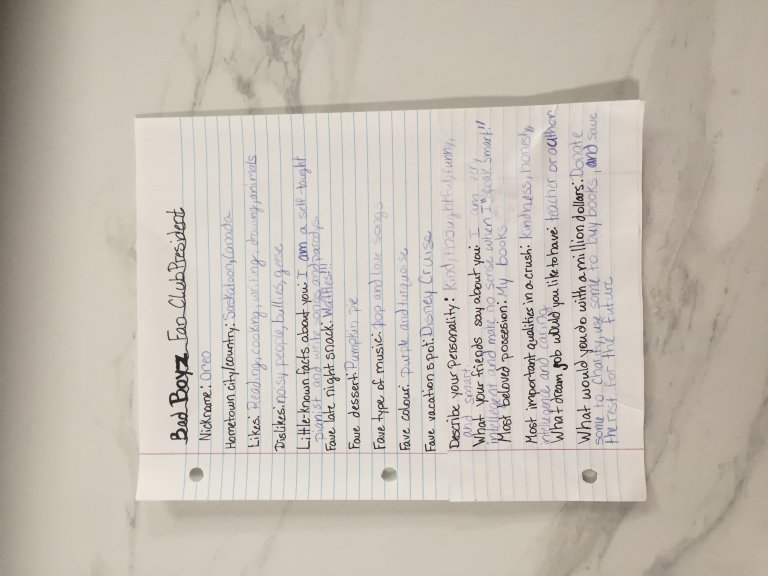 Bad Boyz Fan Club President
Nickname: Oreo
Hometown city/country: Saskatoon, Canada
Likes: Reading, cooking, writing, drawing, animals
Dislikes: noisy people, bullies, gorse
Little-known facts about you: I am a self-taught
pianist and write songs and parodys.
Fave late night snack: Waffles!!!
Fave dessert: Pumpkin pie
Fave type of music: pop and love songs
Fave colour: Purple and turquoise
Fave vacation spot: Disney Cruise
Describe your personality: Kind, thoughtful, funny,
and smart
What your friends say about you: I am very
intelligent and make no sense when I "speak smart"
Most beloved possesion: My books
Most important qualities in a crush: Kindness, honesty,
intelligence and caring
What dream job would you like to have: teacher or author
What would you do with a million dollars: Donate
some to charity, use some to buy books, and save
the rest for the future